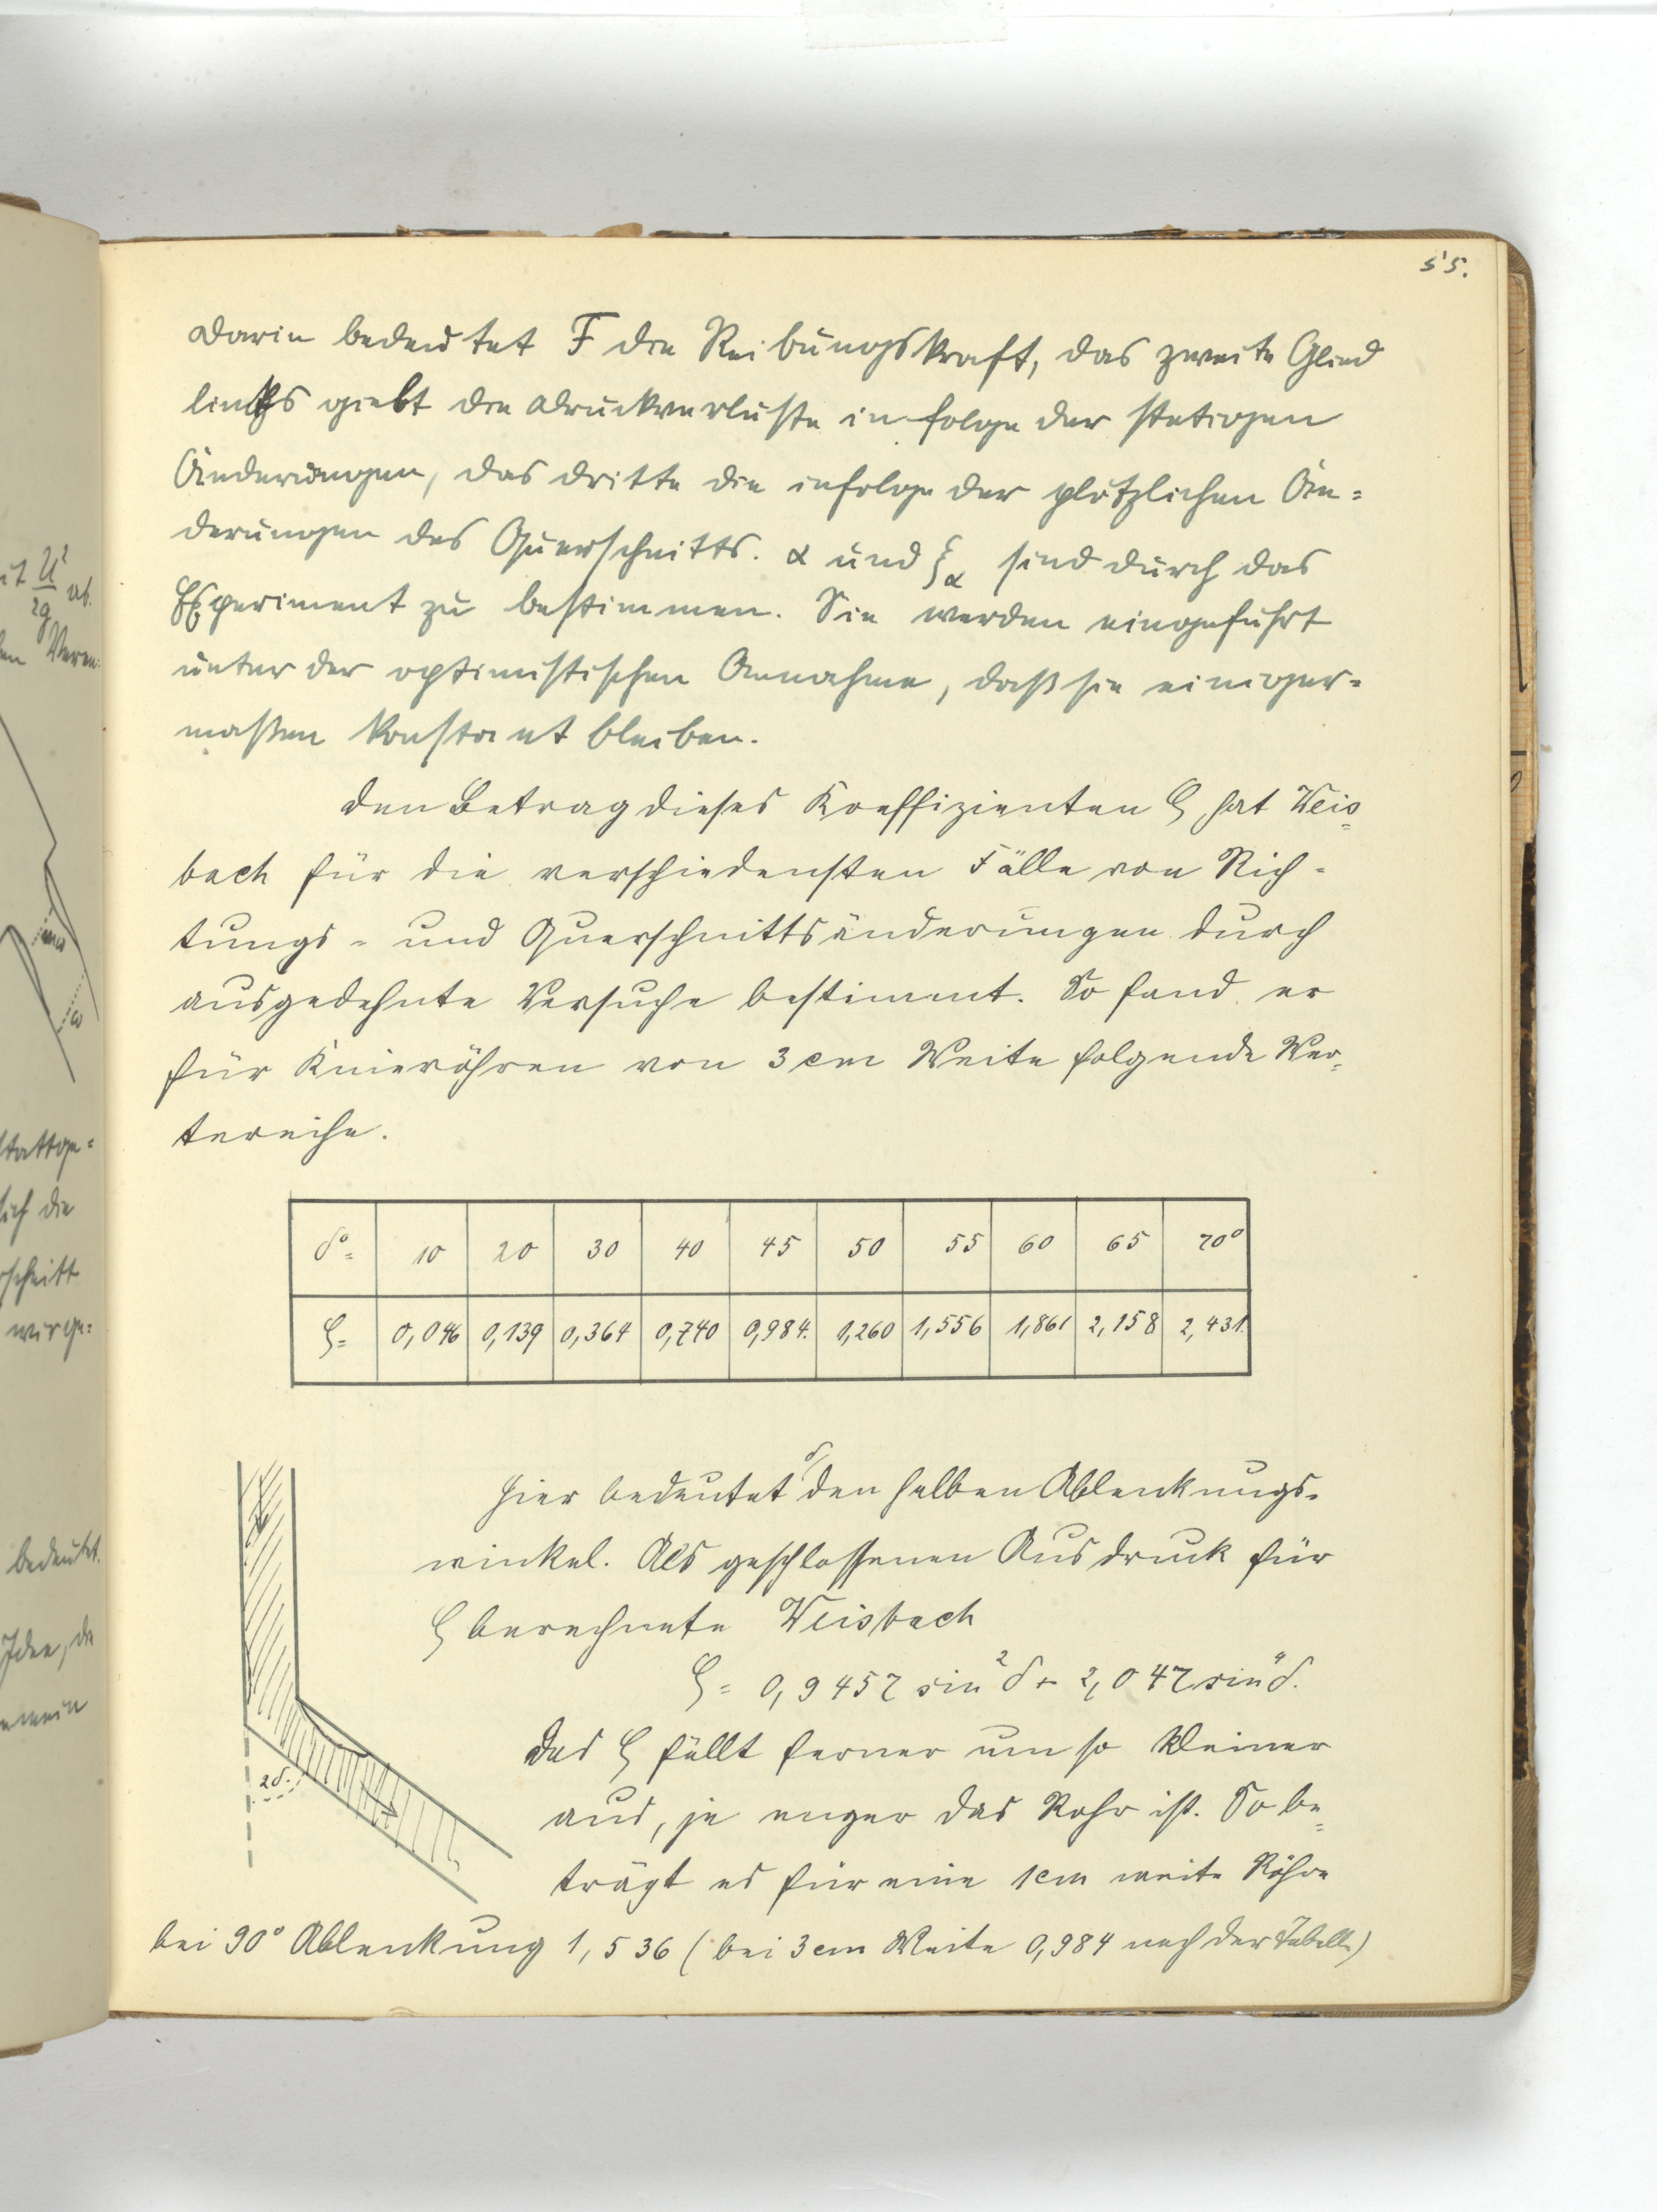 55.
Darin bedeutet F die Reibungskraft, das zweite Glied
links giebt die Druckverluste infolge der stetigen
Änderungen, das dritte die infolge der plötzlichen Än=
derungen des Querschnitts. α und ξα sind durch das
Experiment zu bestimmen. Sie werden eingeführt
unter der optimistischen Annahme, daß sie einiger=
maßen konstant bleiben.
Den Betrag dieses Koeffizienten ζ hat Weis=
bach für die verschiedensten Fälle von Rich-
tungs- und Querschnittsänderungen durch
ausgedehnte Versuche bestimmt. So fand er
für Knieröhren von 3 cm Weite folgende Wer=
tereihe.
δ°= 10 20 30 40 45 50 55 60 65 70°
ζ= 0,046 0,139 0,364 0,740 0,984. 1,260 1,556 1,861 2,158 2,431.
Hier bedeutet δ den halben Ablenkungs-
winkel. Als geschlossenen Ausdruck für
ζ berechnete Weisbach
ζ = 0,9457 sin²δ + 2,047 sin⁴δ.
Das ζ fällt ferner um so kleiner
aus, je enger das Rohr ist. So be=
trägt es für eine 1cm weite Röhre
bei 90° Ablenkung 1,536 (bei 3cm Weite 0,984 nach der Tabelle)
2δ.
it U²/2g ab.
stattge=
sich die
wir ge=
bedeutet.
Idee, die